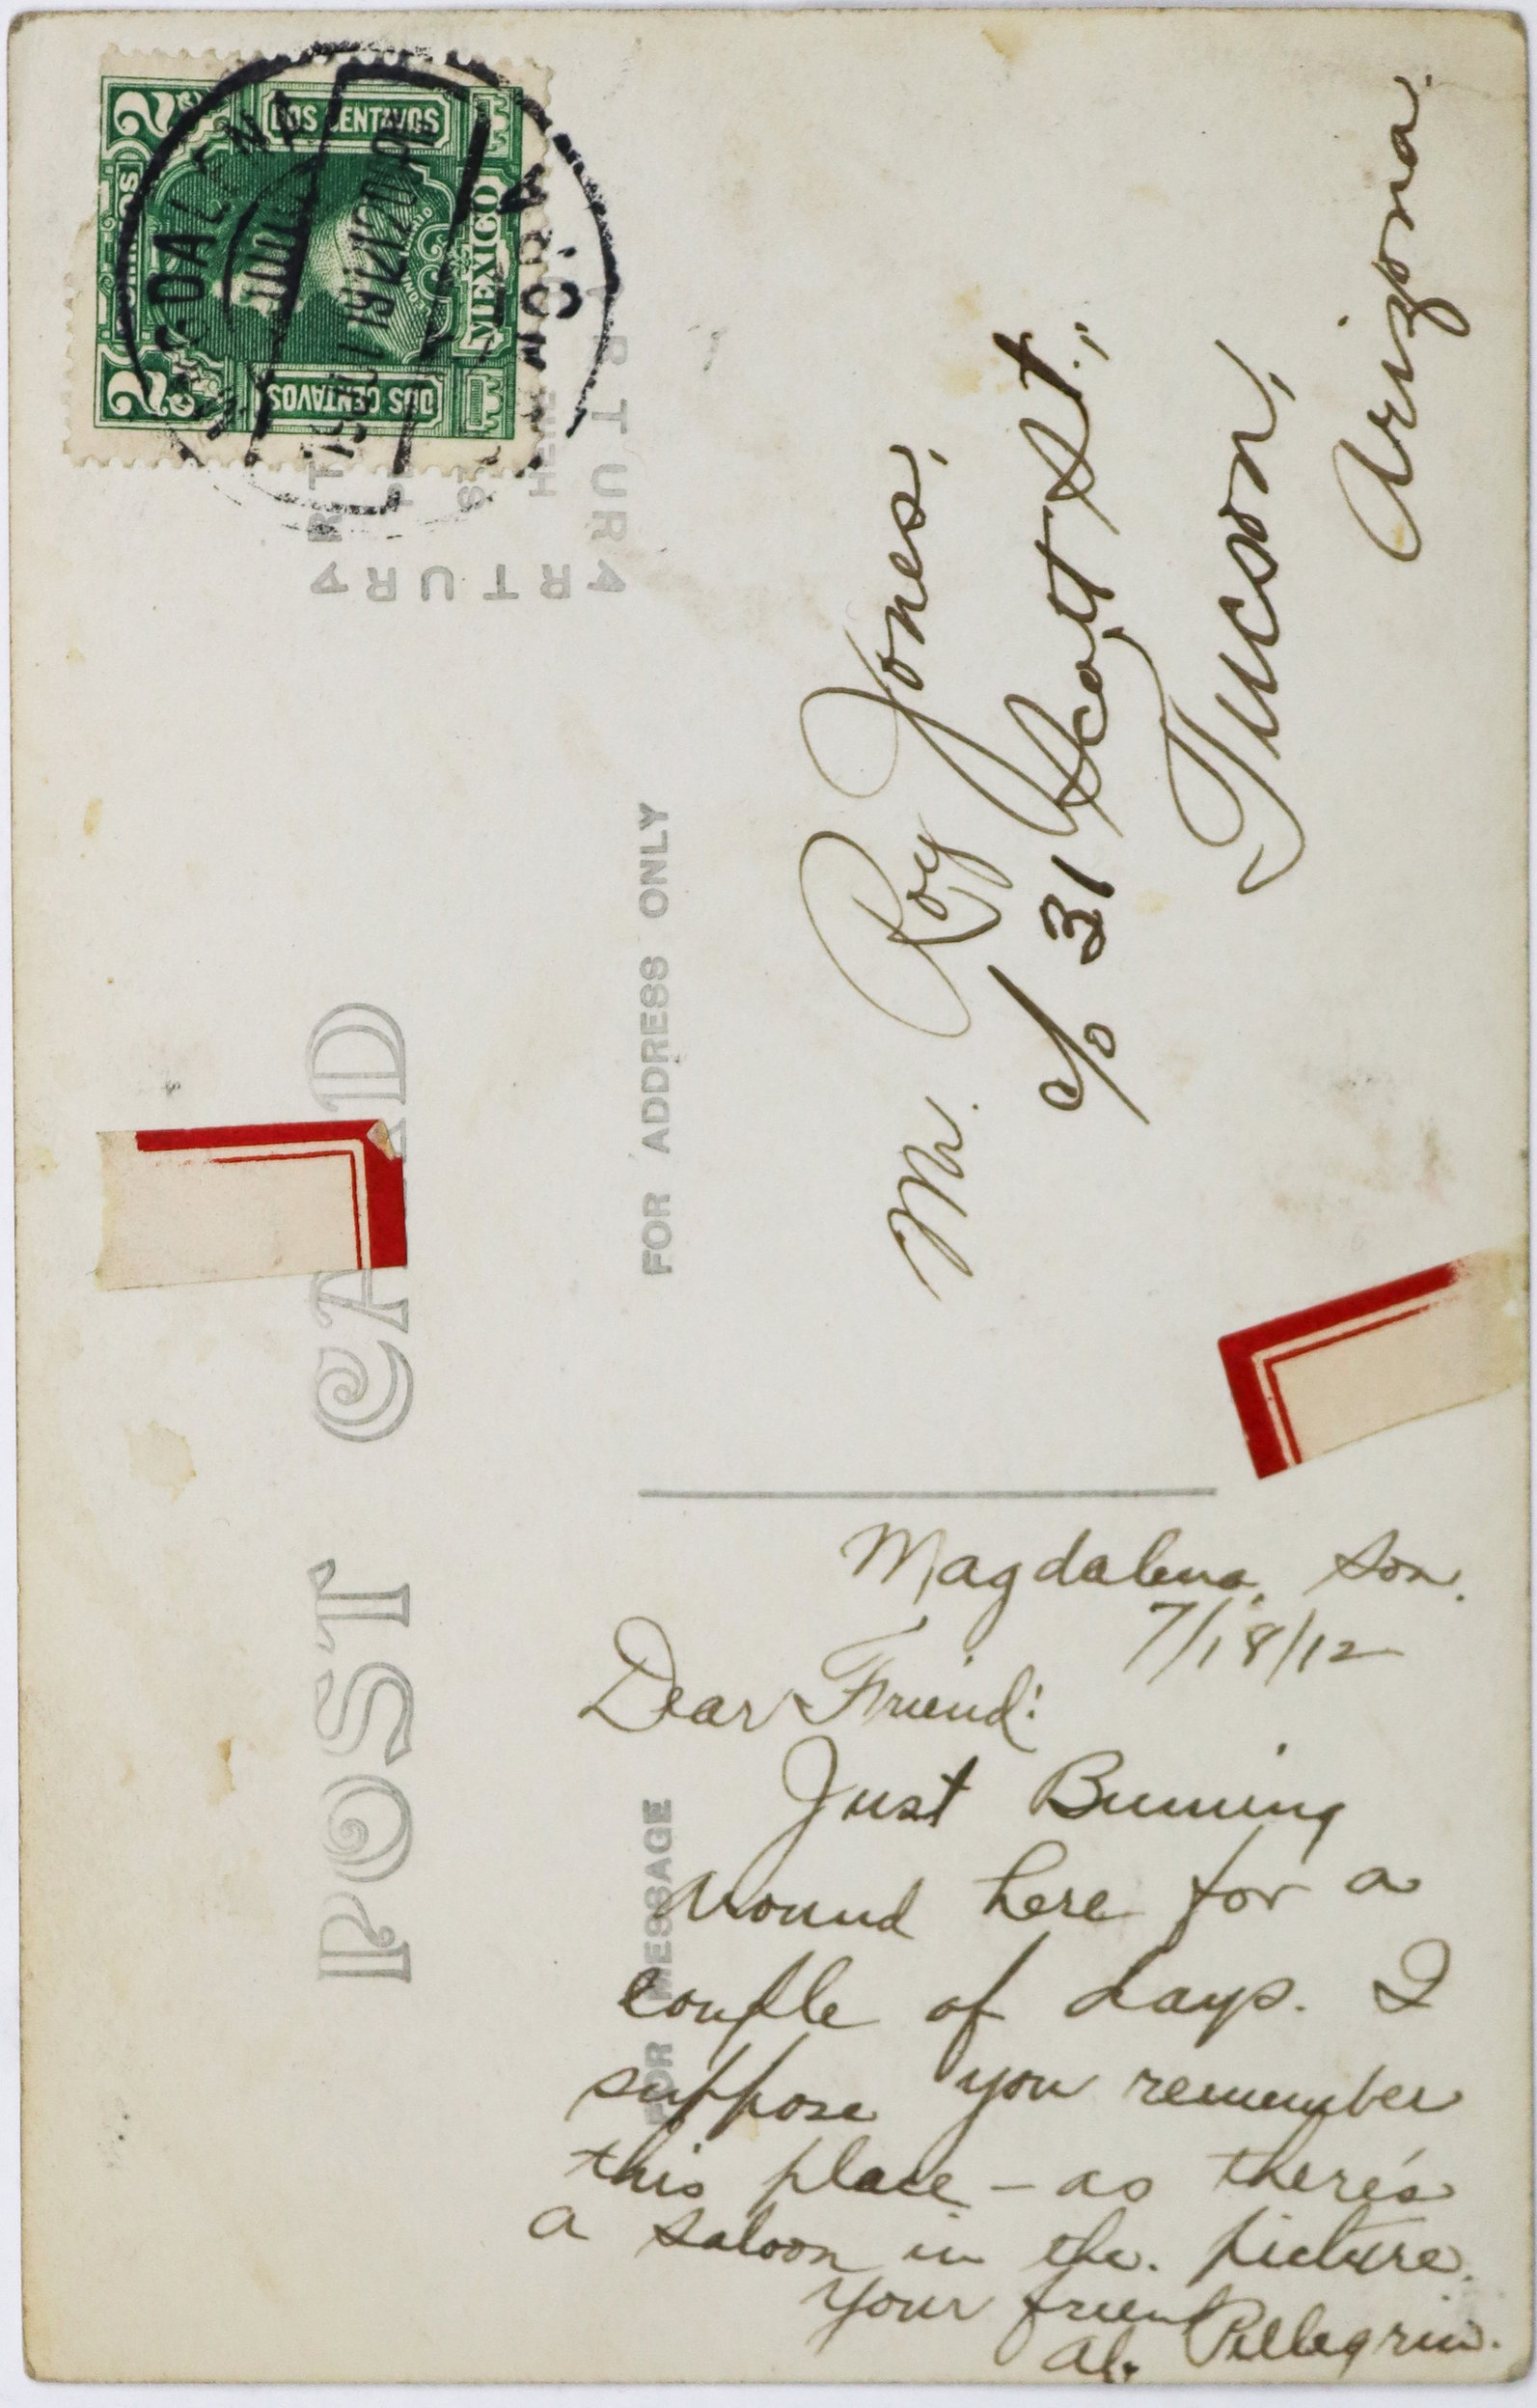 POST CARD
FOR ADDRESS ONLY
FOR MESSAGE
CORREOS
2 2
DOS CENTAVOS
DOS CENTAVOS
MEXICO
MAGDALENA
ARTURA
ARTURA
HERE
Mr. Roy Jones,
c/o 31 Scott St.,
Tucson,
Arizona.
Magdalena, Son.
7/18/12
Dear Friend:
Just Bumming
around here for a
couple of days. I
suppose you remember
this place – as there's
a saloon in the. picture.
Your friend
Al. Pellegrin.